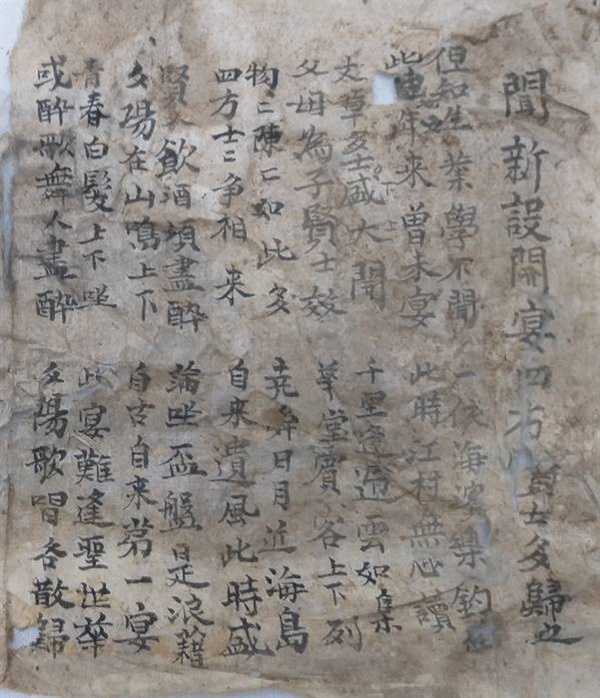 聞新設開宴四方士多歸也
但知生業學不聞 一依海樂釣
此年來曾未宴 此時江村無心讀
文章多士咸大聞 千里雲如集
父母為子賢士效 華堂賓客上下列
物二陳二如此多 堯舜日月近海島
四方士二爭相來 自来遺風此時盛
賢人飲酒須盡醉 滿坐盃盤是浪藉
夕陽在山鳴上下 自古自来第一宴
青春白髮上下坐 此宴難逢聖世華
或醉歌舞人盡醉 夕陽歌唱各散歸